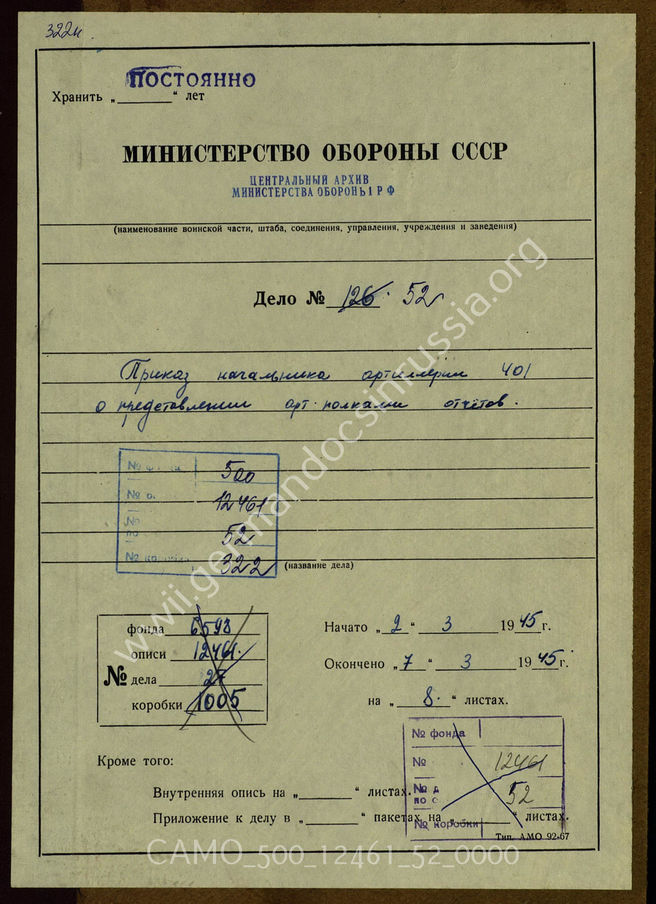 322н
ПОСТОЯННО
Хранить „ “ лет
МИНИСТЕРСТВО ОБОРОНЫ СССР
ЦЕНТРАЛЬНЫЙ АРХИВ
МИНИСТЕРСТВА ОБОРОНЫ РФ
(наименование воинской части, штаба, соединения, управления, учреждения и заведения)
Дело № 126. 52
Приказ начальника артиллерии 401
о представлении арт. полками отчётов.
№ 500
№ о. 12461
№ по 52
№ коробки 322
(название дела)
фонда 6598
описи 12461.
№ дела 27
коробки 1005
Начато „2“ 3 1945 г.
Окончено „7“ 3 1945 г.
на „8.“ листах.
№ фонда
№ 12461
№ д по о 52
№ коробки
Кроме того:
Внутренняя опись на „ “ листах.
Приложение к делу в „ “ пакетах на „ “ листах.
Тип. АМО 92-67
www.germandocsinrussia.org
CAMO_500_12461_52_0000